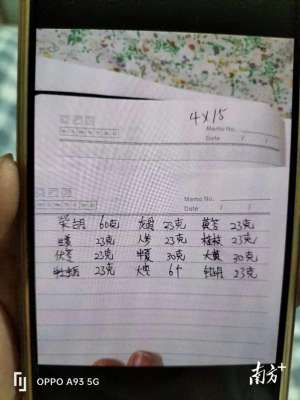 4×15
Memo No.
Date / /
Memo No.
Date / /
柴胡 60克 龙骨 23克 黄芩 23克
生姜 23克 人参 23克 桂枝 23克
伏苓 23克 半夏 30克 大黄 30克
牡蛎 23克 大枣 6个 23克
OPPO A93 5G
南方+